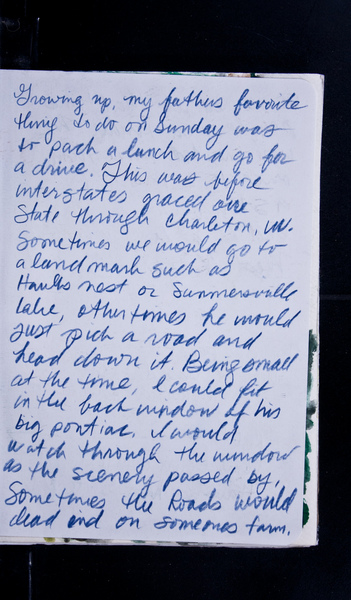 Growing up, my fathers favorite
thing to do on Sunday was
to pack a lunch and go for
a drive. This was before
interstates graced our
State through Charleton, WV.
Sometimes we would go to
a land mark such as
Hawks nest or Summersville
lake, other times he would
just pick a road and
head down it. Being small
at the time, I could fit
in the back window of his
big pontiac. I would
watch through the window
as the scenery passed by,
Sometimes the Roads would
dead end on someones farm.